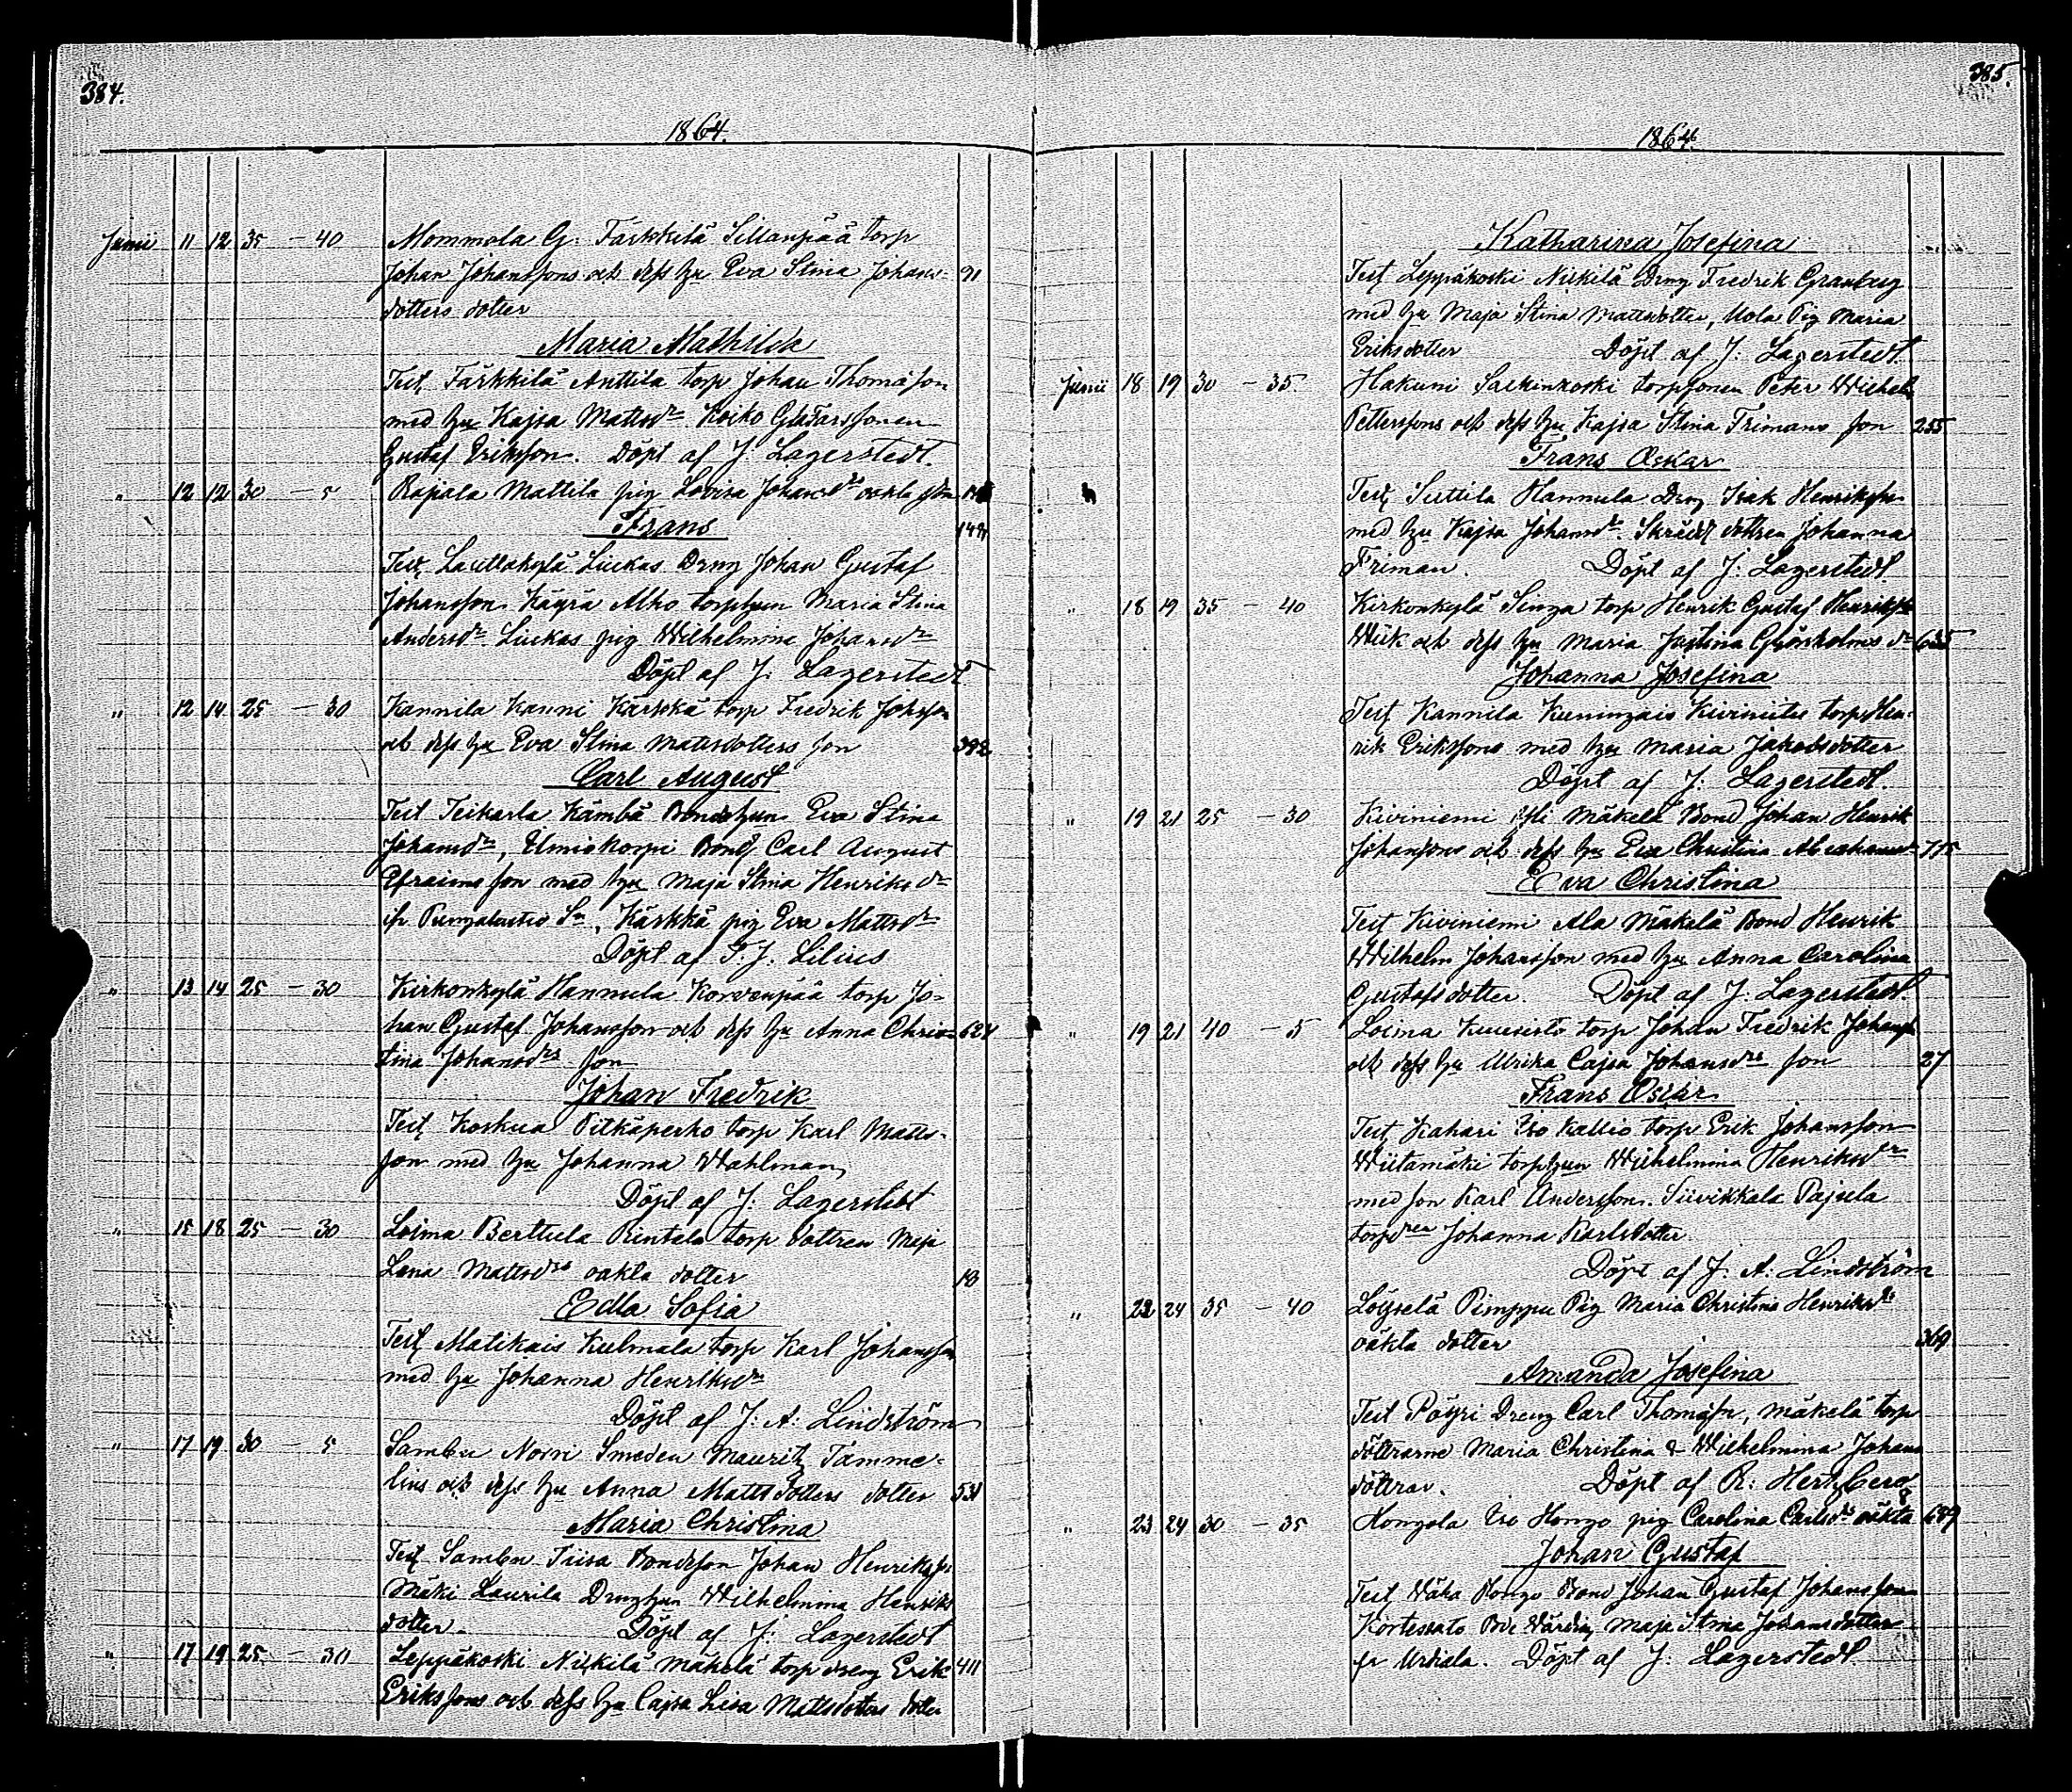 384.
1864.
Junii 11 12 35 - 40 Mommola G: Färkkilä Sillanpää torp
Johan Johanssons och dess hu Eva Stina Johans- 91
dotters dotter
Maria Mathilda
Test Färkkilä Anttila torp Johan Thomasson
med hu Kajsa Mattsdr Koiko sonen
Gustaf Eriksson. Döpt af J: Lagerstedt.
" 12 12 30 - 5 Rajala Mattila pig Lovisa Johansdrs oäkta son
Frans 149
Test Lauttakylä Liukas Dreng Johan Gustaf
Johansson Käyrä Alho torphun Maria Stina
Andersdr Liukas pig Wilhelmina Johansdr
Döpt af J: Lagerstedt
" 12 14 25 - 30 Kannila Kanni Kärkkä torp Fredrik Johsson
och dess hu Eva Stina Mattsdotters son 392
Carl August
Test Teikarla Kämbä Bondehun Eva Stina
Johansdr, Elmiskorpi Bond Carl August
Efraimsson med hu Maja Stina Henriksdr
ifr Pungalaitio Sn, Kärkkä pig Eva Mattsdr
Döpt af F. J. Lilius
" 13 14 25 - 30 Kirkonkylä Hannula Korvenpää torp Jo-
han Gustaf Johansson och dess hu Anna Chris- 624
tina Johansdrs son
Johan Fredrik
Test Koskua Pitkäperko torp Karl Matts-
son med hu Johanna Wahlman
Döpt af J: Lagerstedt
" 15 18 25 - 30 Loima Berttula Rintala torp dottren Maja
Lena Mattsdrs oäkta dotter 18
Edla Sofia
Test Matikais Kulmala torp Karl Johansson
med hu Johanna Henriksdr
Döpt af J: A: Lindström
" 17 19 30 - 5 Sambu Norri Smeden Mauritz Tamme-
lius och dess hu Anna Mattsdotters dotter 531
Maria Christina
Test Sambu Tiisa Bondeson Johan Henriksson
Mäki Laurila Drenghun Wilhelmina Henriks
dotter. Döpt af J: Lagerstedt
" 17 19 25 - 30 Leppäkoski Niskilä Mäkelä torp dreng Erik 411
Erikssons och dess hu Cajsa Lisa Mattsdotters dotter
385.
1864.
Katharina Josefina
Test Leppäkoski Niskilä Dreng Fredrik Granberg
med hu Maja Stina Mattsdotter, Uola Pig Maria
Eriksdotter Döpt af J: Lagerstedt
Junii 18 19 30 - 35. Hakuni torpsonen Peter Wilhelm
Petterssons och dess hu Kajsa Stina Frimans son 255
Frans Oskar
Test Suttila Hannula Dreng Isak Henriksson
med hu Kajsa Johansdr. Skrädd dottren Johanna
Friman. Döpt af J: Lagerstedt
" 18 19 35 - 40 Kirkonkylä Senga torp Henrik Gustaf Henriksson
Wiik och dess hu Maria Justina Grönholms dr 635
Johanna Josefina
Test Kannila Kuningais Kiviniitu torp Hen-
rik Erikssons med hu Maria Jakobsdotter
Döpt af J: Lagerstedt.
" 19 21 25 - 30 Kiviniemi Yli Mäkelä Bond Johan Henrik
Johanssons och dess hu Eva Christina Abrahamsdr
Eva Christina
Test Kiviniemi Ala Mäkelä Bond Henrik
Wilhelm Johansson med hu Anna Carolina
Gustafsdotter. Döpt af J: Lagerstedt.
" 19 21 40 - 5 Loima Kuusisto torp Johan Fredrik Johanss
och dess hu Ulrika Cajsa Johansdrs son 27
Frans Oscar
Test Kahari Iso Kallio torp Erik Johansson
Wiitamäki torphun Wilhelmina Henriksdr
med son Karl Andersson. Suvikkala Pajula
torpdren Johanna Karlsdotter
Döpt af J. A: Lindström
" 22 24 35 - 40 Löyselä Pimppu Pig Maria Christina Henriksdrs
oäkta dotter 369
Amanda Josefina
Test Pöyri Dreng Carl Thomasson, Mäkelä torp
döttrarne Maria Christina & Wilhelmina Johans
döttrar. Döpt af R: Hertzberg
" 23 24 30 - 35 Hongola Iso Hongo pig Carolina Carlsdrs oäkta 689
Johan Gustaf
Test Wäha Hongo Bond Johan Gustaf Johansson
Maja Stina Johansdotter
fr Urdiala. Döpt af J: Lagerstedt.